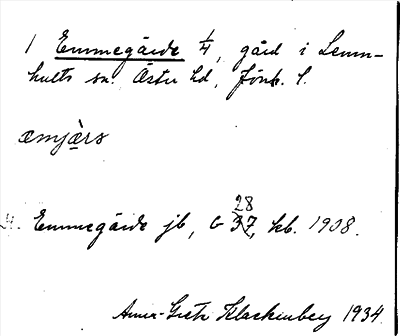 1 Emmegärde 1/4, gård i Lemn-
hults sn. Östra hd, Jönk. l.
æmjæ̀rs
Emmegärde jb, G 37, kb. 1908.
28
Anna-Greta Klackenberg 1934